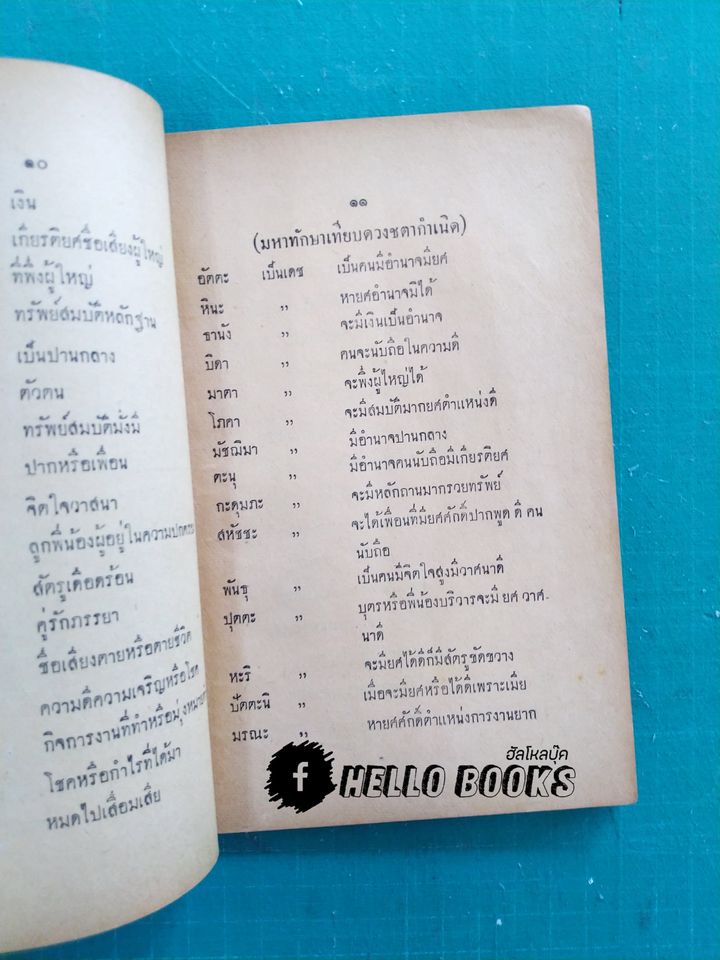 ๑๐
เงิน
เกียรติยศชื่อเสียงผู้ใหญ่
ที่พึ่งผู้ใหญ่
ทรัพย์สมบัติหลักฐาน
เป็นปานกลาง
ตัวตน
ทรัพย์สมบัติมั่งมี
ปากหรือเพื่อน
จิตใจวาสนา
ลูกพี่น้องผู้อยู่ในความปกครอง
สัตรูเดือดร้อน
คู่รักภรรยา
ชื่อเสียงตายหรือตายชีวิต
ความดีความเจริญหรือโชค
กิจการงานที่ทำหรือมุ่งหมาย
โชคหรือกำไรที่ได้มา
หมดไปเสื่อมเสีย
๑๑
(มหาทักษาเทียบดวงชตากำเนิด)
อัตตะ เป็นเดช เป็นคนมีอำนาจมียศ
หินะ ,, หายศอำนาจมิได้
ธานัง ,, จะมีเงินเป็นอำนาจ
บิดา ,, คนจะนับถือในความดี
มาตา ,, จะพึ่งผู้ใหญ่ได้
โภคา ,, จะมีสมบัติมากยศตำแหน่งดี
มัชฌิมา ,, มีอำนาจปานกลาง
ตะนุ ,, มีอำนาจคนนับถือมีเกียรติยศ
กะดุมภะ ,, จะมีหลักถานมากรวยทรัพย์
สหัชชะ ,, จะได้เพื่อนที่มียศศักดิ์ปากพูด ดี คน
นับถือ
พันธุ ,, เป็นคนมีจิตใจสูงมีวาศนาดี
ปุตตะ ,, บุตรหรือพี่น้องบริวารจะมี ยศ วาศ-
นาดี
หะริ ,, จะมียศได้ดีก็มีสัตรูขัดขวาง
ปัตตะนิ ,, เมื่อจะมียศหรือได้ดีเพราะเมีย
มรณะ ,, หายศศักดิ์ตำแหน่งการงานยาก
ฮัลโหลบุ๊ค
f HELLO BOOKS